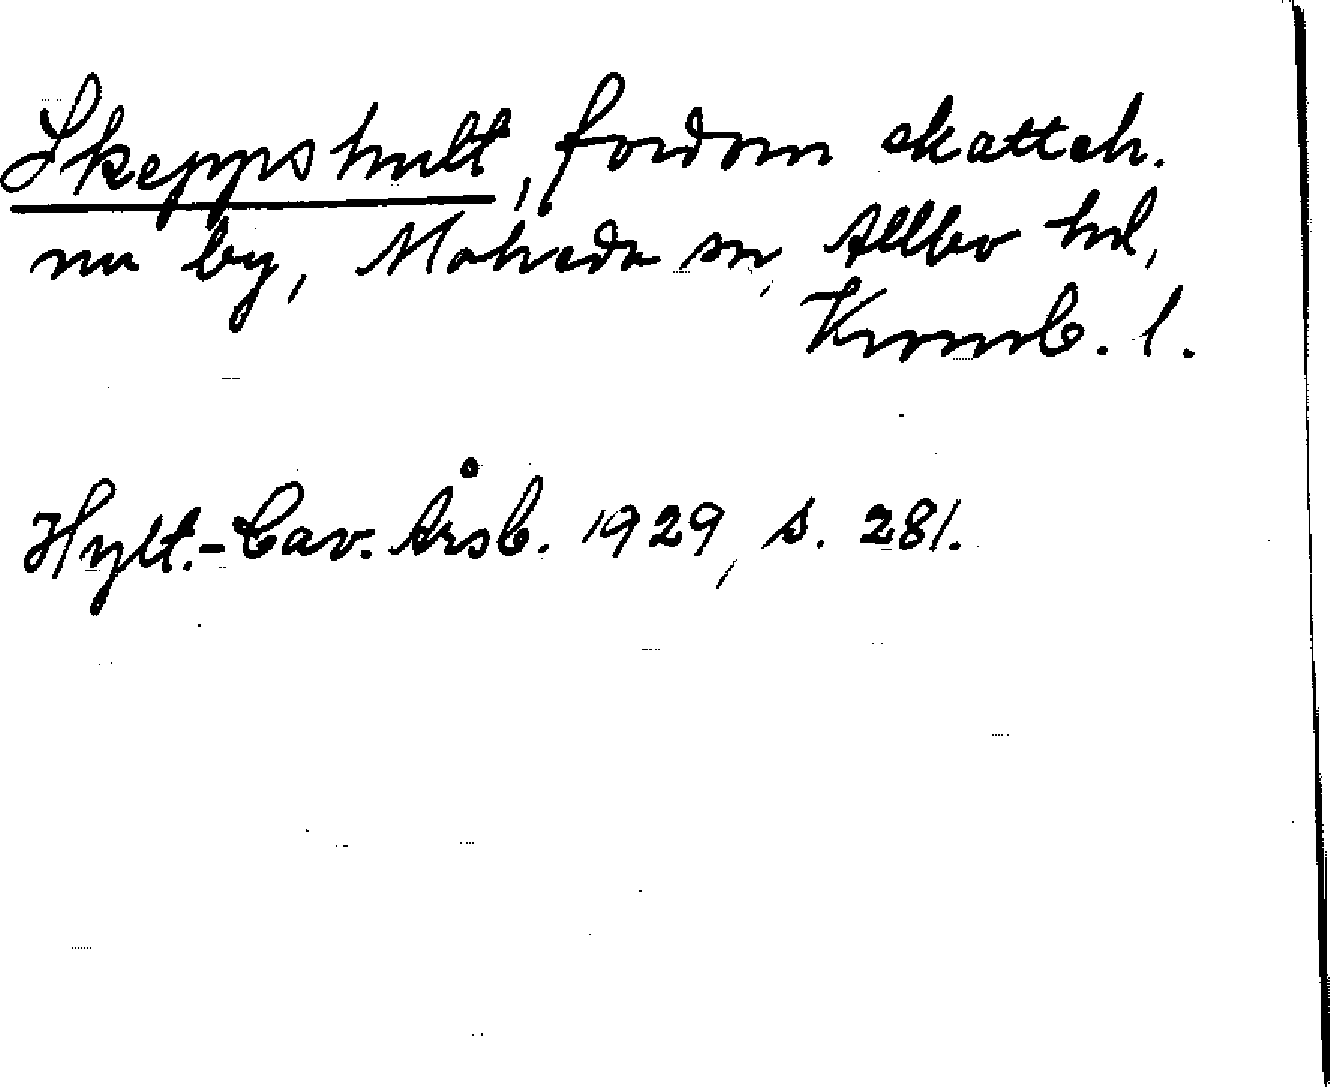 Skeppshult, fordom skatteh.
nu by, Moheda sn, Allbo hd,
Kronob. l.
Hylt.-Cav. Årsb. 1929, s. 281.